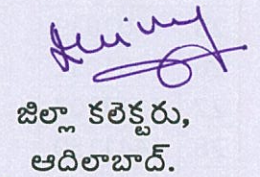 జిల్లా కలెక్టరు,
ఆదిలాబాద్.